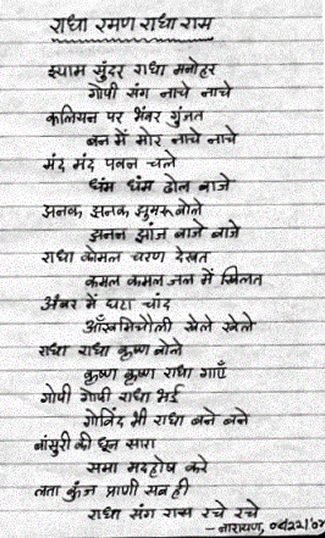 राधा रमण राधा रास
श्याम सुंदर राधा मनोहर
गोपी संग नाचे नाचे
कलियन पर भंवर गुंजत
बन में मोर नाचे नाचे
मंद मंद पवन चले
धंम धंम ढोल बाजे
झनक झनक झुमरू बोले
झनन झांज बाजे बाजे
राधा कोमल चरण देखत
कमल कमल जल में खिलत
अंबर में घटा चांद
आँखमिचौली खेले खेले
राधा राधा कृष्ण बोले
कृष्ण कृष्ण राधा गाएँ
गोपी गोपी राधा भई
गोविंद भी राधा बने बने
बांसुरी की धून सारा
समा मदहोष करे
लता कुंज प्राणी सब ही
राधा संग रास रचे रचे
-नारायण, 04/22/07